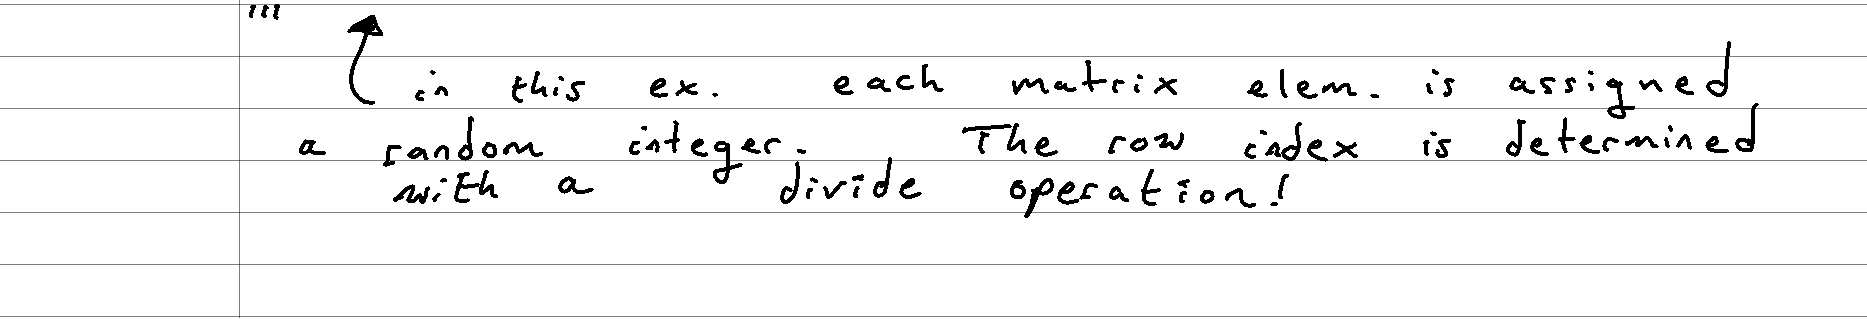 '''
in this ex. each matrix elem. is assigned
a random integer. The row index is determined
with a divide operation!